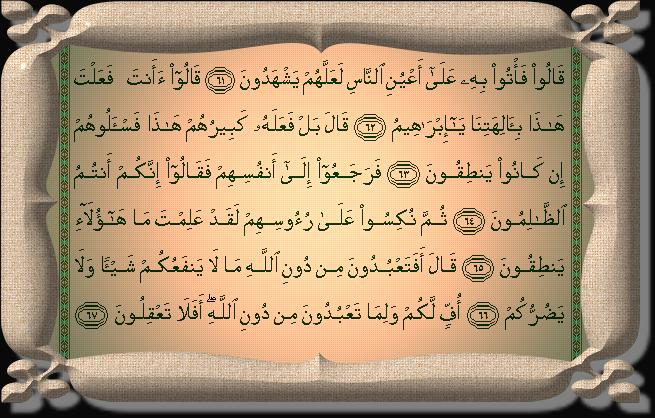 قَالُوا۟ فَأْتُوا۟ بِهِۦ عَلَىٰٓ أَعْيُنِ ٱلنَّاسِ لَعَلَّهُمْ يَشْهَدُونَ ٦١ قَالُوٓا۟ ءَأَنتَ فَعَلْتَ
هَـٰذَا بِـَٔالِهَتِنَا يَـٰٓإِبْرَٰهِيمُ ٦٢ قَالَ بَلْ فَعَلَهُۥ كَبِيرُهُمْ هَـٰذَا فَسْـَٔلُوهُمْ
إِن كَانُوا۟ يَنطِقُونَ ٦٣ فَرَجَعُوٓا۟ إِلَىٰٓ أَنفُسِهِمْ فَقَالُوٓا۟ إِنَّكُمْ أَنتُمُ
ٱلظَّـٰلِمُونَ ٦٤ ثُمَّ نُكِسُوا۟ عَلَىٰ رُءُوسِهِمْ لَقَدْ عَلِمْتَ مَا هَـٰٓؤُلَآءِ
يَنطِقُونَ ٦٥ قَالَ أَفَتَعْبُدُونَ مِن دُونِ ٱللَّهِ مَا لَا يَنفَعُكُمْ شَيْـًٔا وَلَا
يَضُرُّكُمْ ٦٦ أُفٍّ لَّكُمْ وَلِمَا تَعْبُدُونَ مِن دُونِ ٱللَّهِ ۖ أَفَلَا تَعْقِلُونَ ٦٧